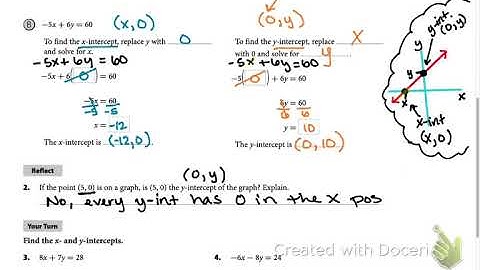 (0,y)
B -5x + 6y = 60 (x,0)
To find the x-intercept, replace y with 0
and solve for x.
-5x+6y=60
-5x + 6(0) = 60
-5x = 60
-5 -5
x = -12
The x-intercept is (-12,0).
To find the y-intercept, replace x
with 0 and solve for y.
-5x+6y=60
-5(0) + 6y = 60
6y = 60
6 6
y = 10
The y-intercept is (0,10)
y-int
(0,y)
y
y
x
x
x-int
(x,0)
Reflect
(0,y)
2. If the point (5, 0) is on a graph, is (5, 0) the y-intercept of the graph? Explain.
No, every y-int has 0 in the x pos
Your Turn
Find the x- and y-intercepts.
3. 8x + 7y = 28
4. -6x - 8y = 24
Created with Doceri